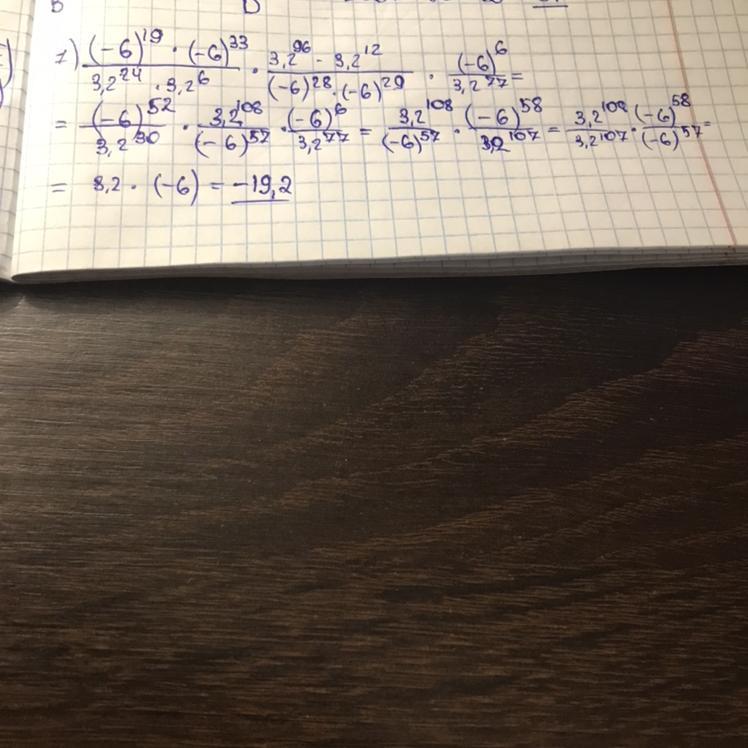 1) (-6)^19 · (-6)^33 / 3,2^24 · 3,2^6 · 3,2^96 · 3,2^12 / (-6)^28 · (-6)^29 · (-6)^6 / 3,2^77 =
= (-6)^52 / 3,2^30 · 3,2^108 / (-6)^57 · (-6)^6 / 3,2^77 = 3,2^108 / (-6)^57 · (-6)^58 / 3,2^107 = 3,2^108 / 3,2^107 · (-6)^58 / (-6)^57 =
= 3,2 · (-6) = -19,2